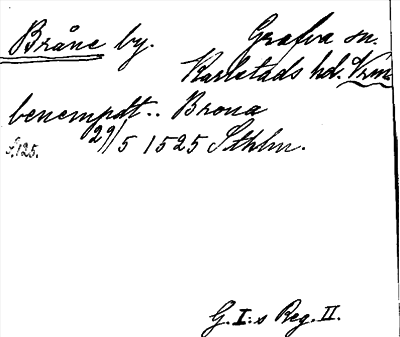 Bråne by. Grafva sn.
Karlstads hd. Vrm.
benempdt.. Brona
29/5 1525 Sthlm.
s. 125.
G. I:s Reg. II.